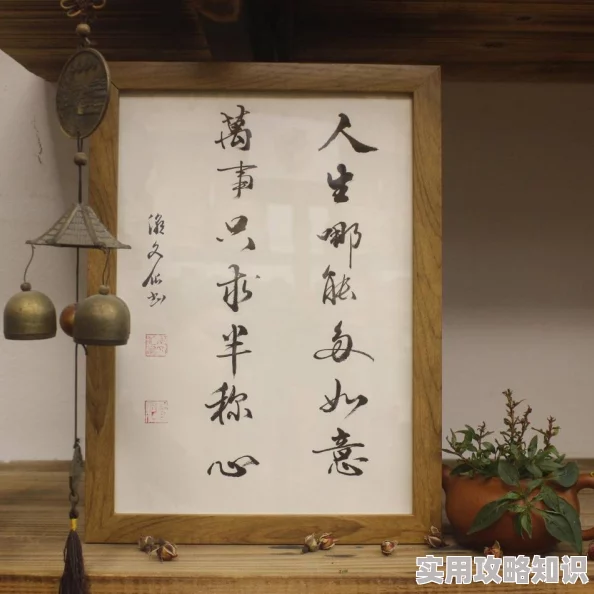 人生哪能多如意
萬事只求半称心
实用攻略知识